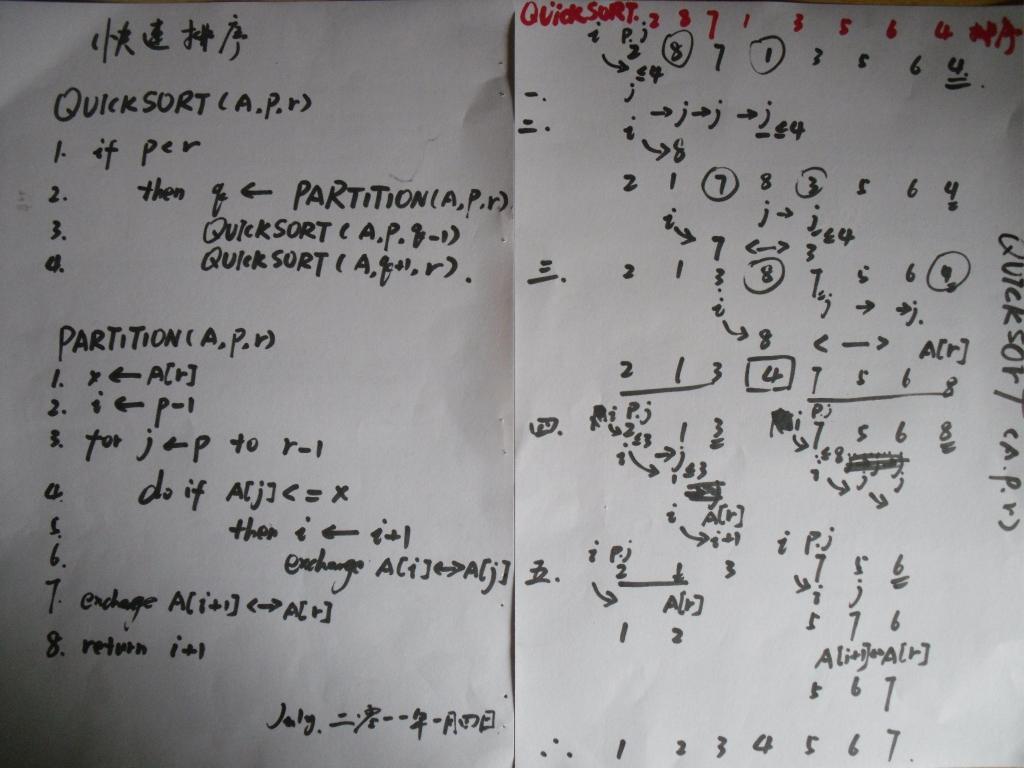 快速排序
QUICKSORT(A,p,r)
1. if p<r
2. then q ← PARTITION(A,p,r)
3. QUICKSORT(A,p,q-1)
4. QUICKSORT(A,q+1,r).
PARTITION(A,p,r)
1. x ← A[r]
2. i ← p-1
3. for j ← p to r-1
4. do if A[j]<=x
5. then i ← i+1
6. exchange A[i]↔A[j]
7. exchange A[i+1]↔A[r]
8. return i+1
July. 二零一一年一月四日
QUICKSORT. 2 8 7 1 3 5 6 4 排序
i p.j
2 8 7 1 3 5 6 4.
≤4
一. j
二. i → j → j → j ≤4
8
2 1 7 8 3 5 6 4
i j → j ≤4
7 <—> 3
三. 2 1 3 8 7 5 6 4
i j → → j.
8 <—> A[r]
2 1 3 4 7 5 6 8
i p.j i p.j
四. 2 1 3 7 5 6 8
≤3 ≤8
i → j i j j
i ≤3
i A[r]
i+1
i p.j i p.j
五. 2 1 3 7 5 6
A[r] i j
1 2 5 7 6
A[i+1]↔A[r]
5 6 7
∴ 1 2 3 4 5 6 7
QUICKSORT (A.p.r)